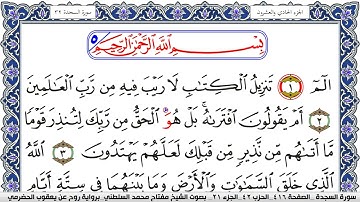 الجزء الحادي والعشرون
سورة السجدة ٣٢
بِسْمِ ٱللَّهِ ٱلرَّحْمَٰنِ ٱلرَّحِيمِ
الٓمٓ ١ تَنزِيلُ ٱلْكِتَٰبِ لَا رَيْبَ فِيهِ مِن رَّبِّ ٱلْعَٰلَمِينَ
٢ أَمْ يَقُولُونَ ٱفْتَرَىٰهُ ۚ بَلْ هُوَ ٱلْحَقُّ مِن رَّبِّكَ لِتُنذِرَ قَوْمًا
مَّآ أَتَىٰهُم مِّن نَّذِيرٍ مِّن قَبْلِكَ لَعَلَّهُمْ يَهْتَدُونَ ٣ ٱللَّهُ
ٱلَّذِى خَلَقَ ٱلسَّمَٰوَٰتِ وَٱلْأَرْضَ وَمَا بَيْنَهُمَا فِى سِتَّةِ أَيَّامٍ
سورة السجدة الصفحة ٤١٦ الحزب ٤٢ الجزء ٢١ بصوت الشيخ مفتاح محمد السلطني برواية روح عن يعقوب الحضرمي